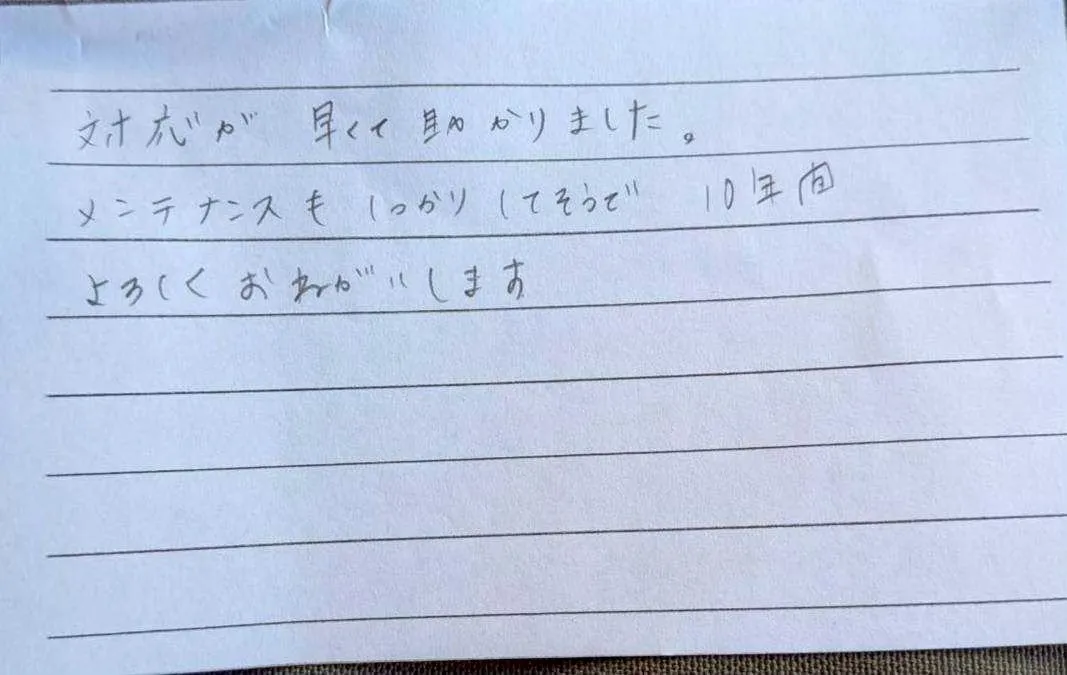 対応が 早くて助かりました。
メンテナンスも しっかりしてそうで 10年間
よろしくおねがいします